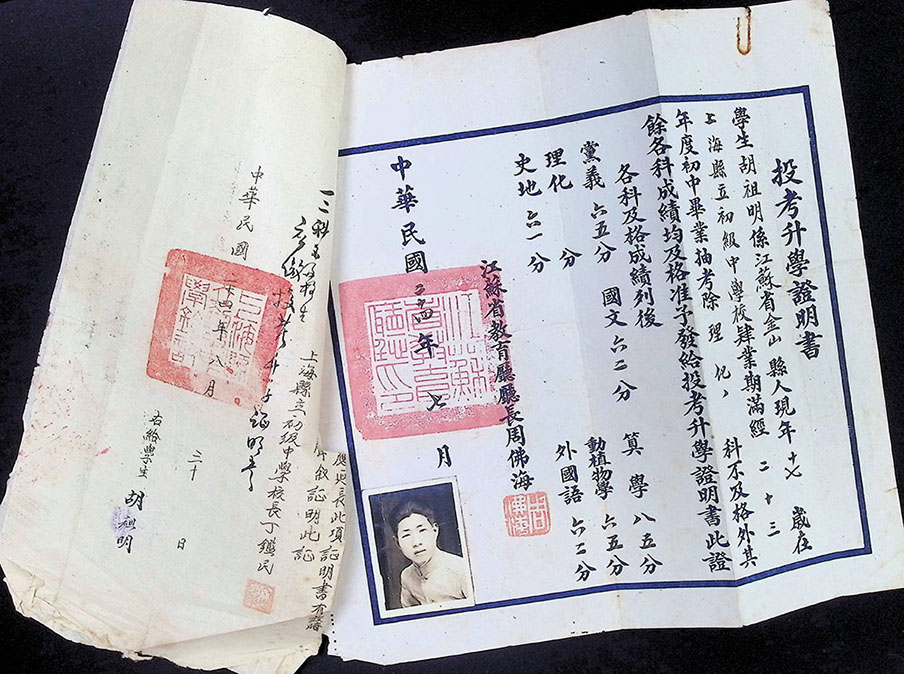 投考升學證明書
學生胡祖明係江蘇省金山縣人現年十七歲在
上海縣立初級中學校肄業期滿經二十三
年度初中畢業抽考除理化科不及格外其
餘各科成績均及格准予發給投考升學證明書此證
各科及格成績列後
國文六二分 算學八五分
黨義六五分 動植物學六五分
理化 分 外國語六二分
史地六一分
江蘇省教育廳廳長周佛海
中華民國二四年七月
江蘇省教育廳印
證明書有
證明此證
上海縣立初級中學校長丁
中華民國二十四年八月三十日
右給學生胡祖明